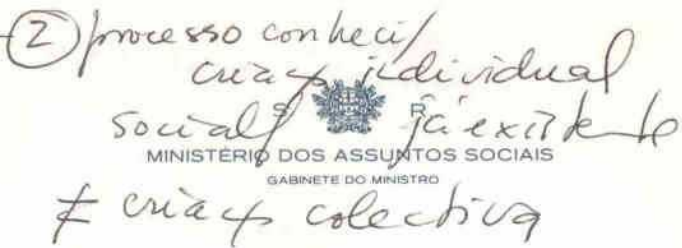 ② processo conheci/
criaç individual
social/ já existente
S. R.
MINISTÉRIO DOS ASSUNTOS SOCIAIS
GABINETE DO MINISTRO
≠ criaç colectiva